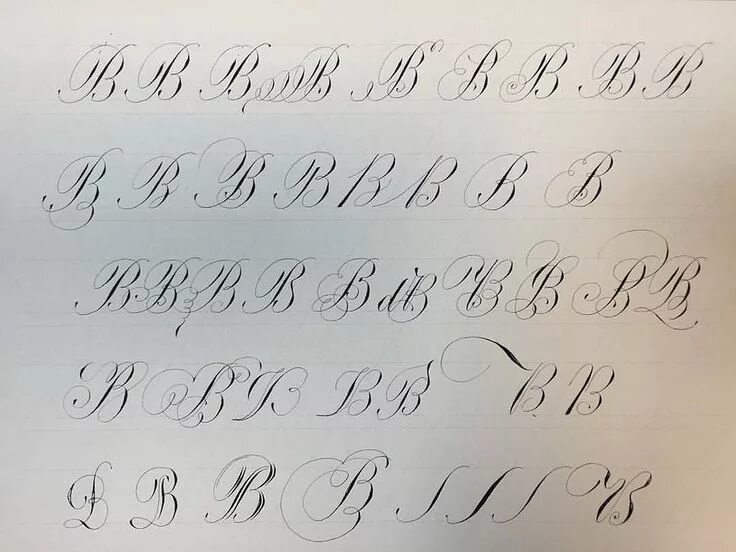 B B B B B B B B B
B B B B B B B B
B B B B B d B B B B B
B B B B B B B
B B B B B